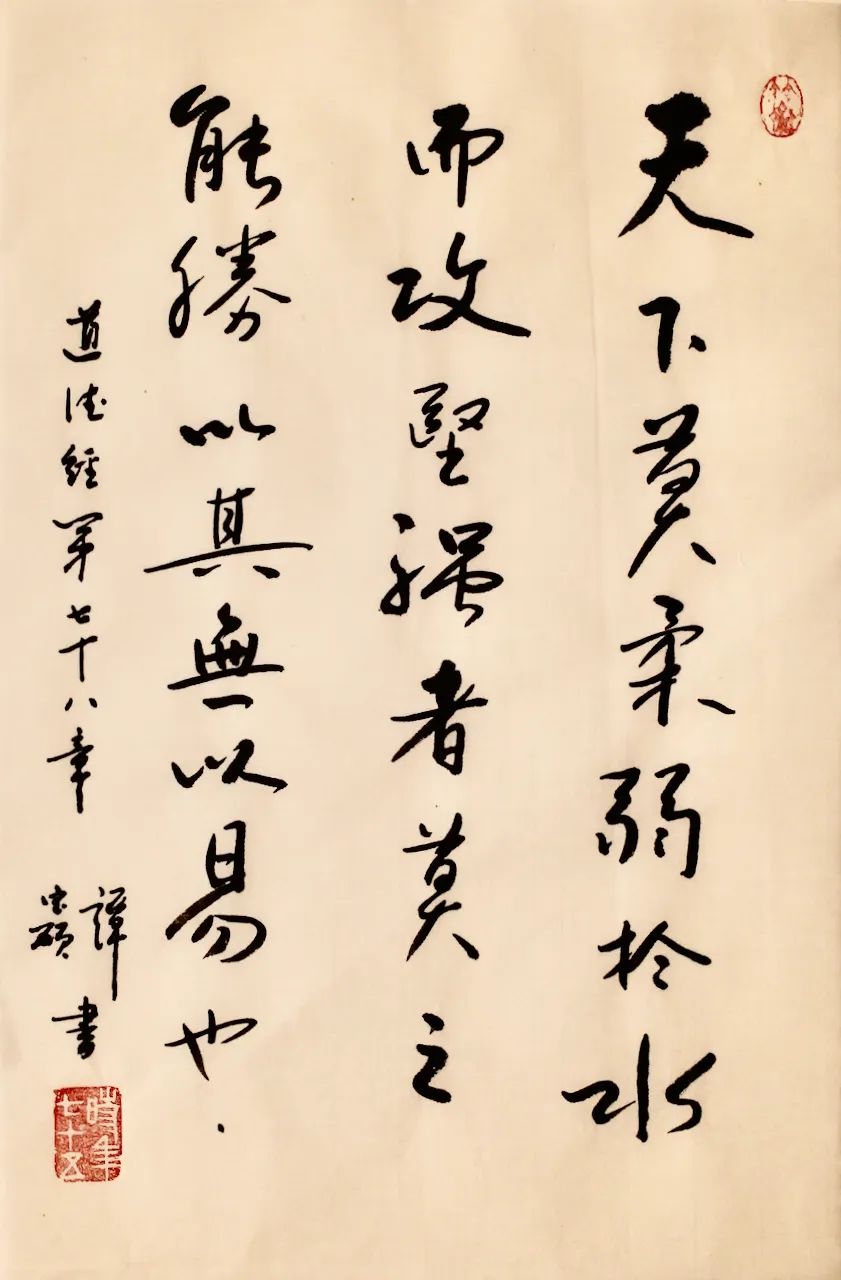 天下莫柔弱於水
而攻堅强者莫之
能勝以其無以易也
道德經第七十八章
譚
書
時年七十五